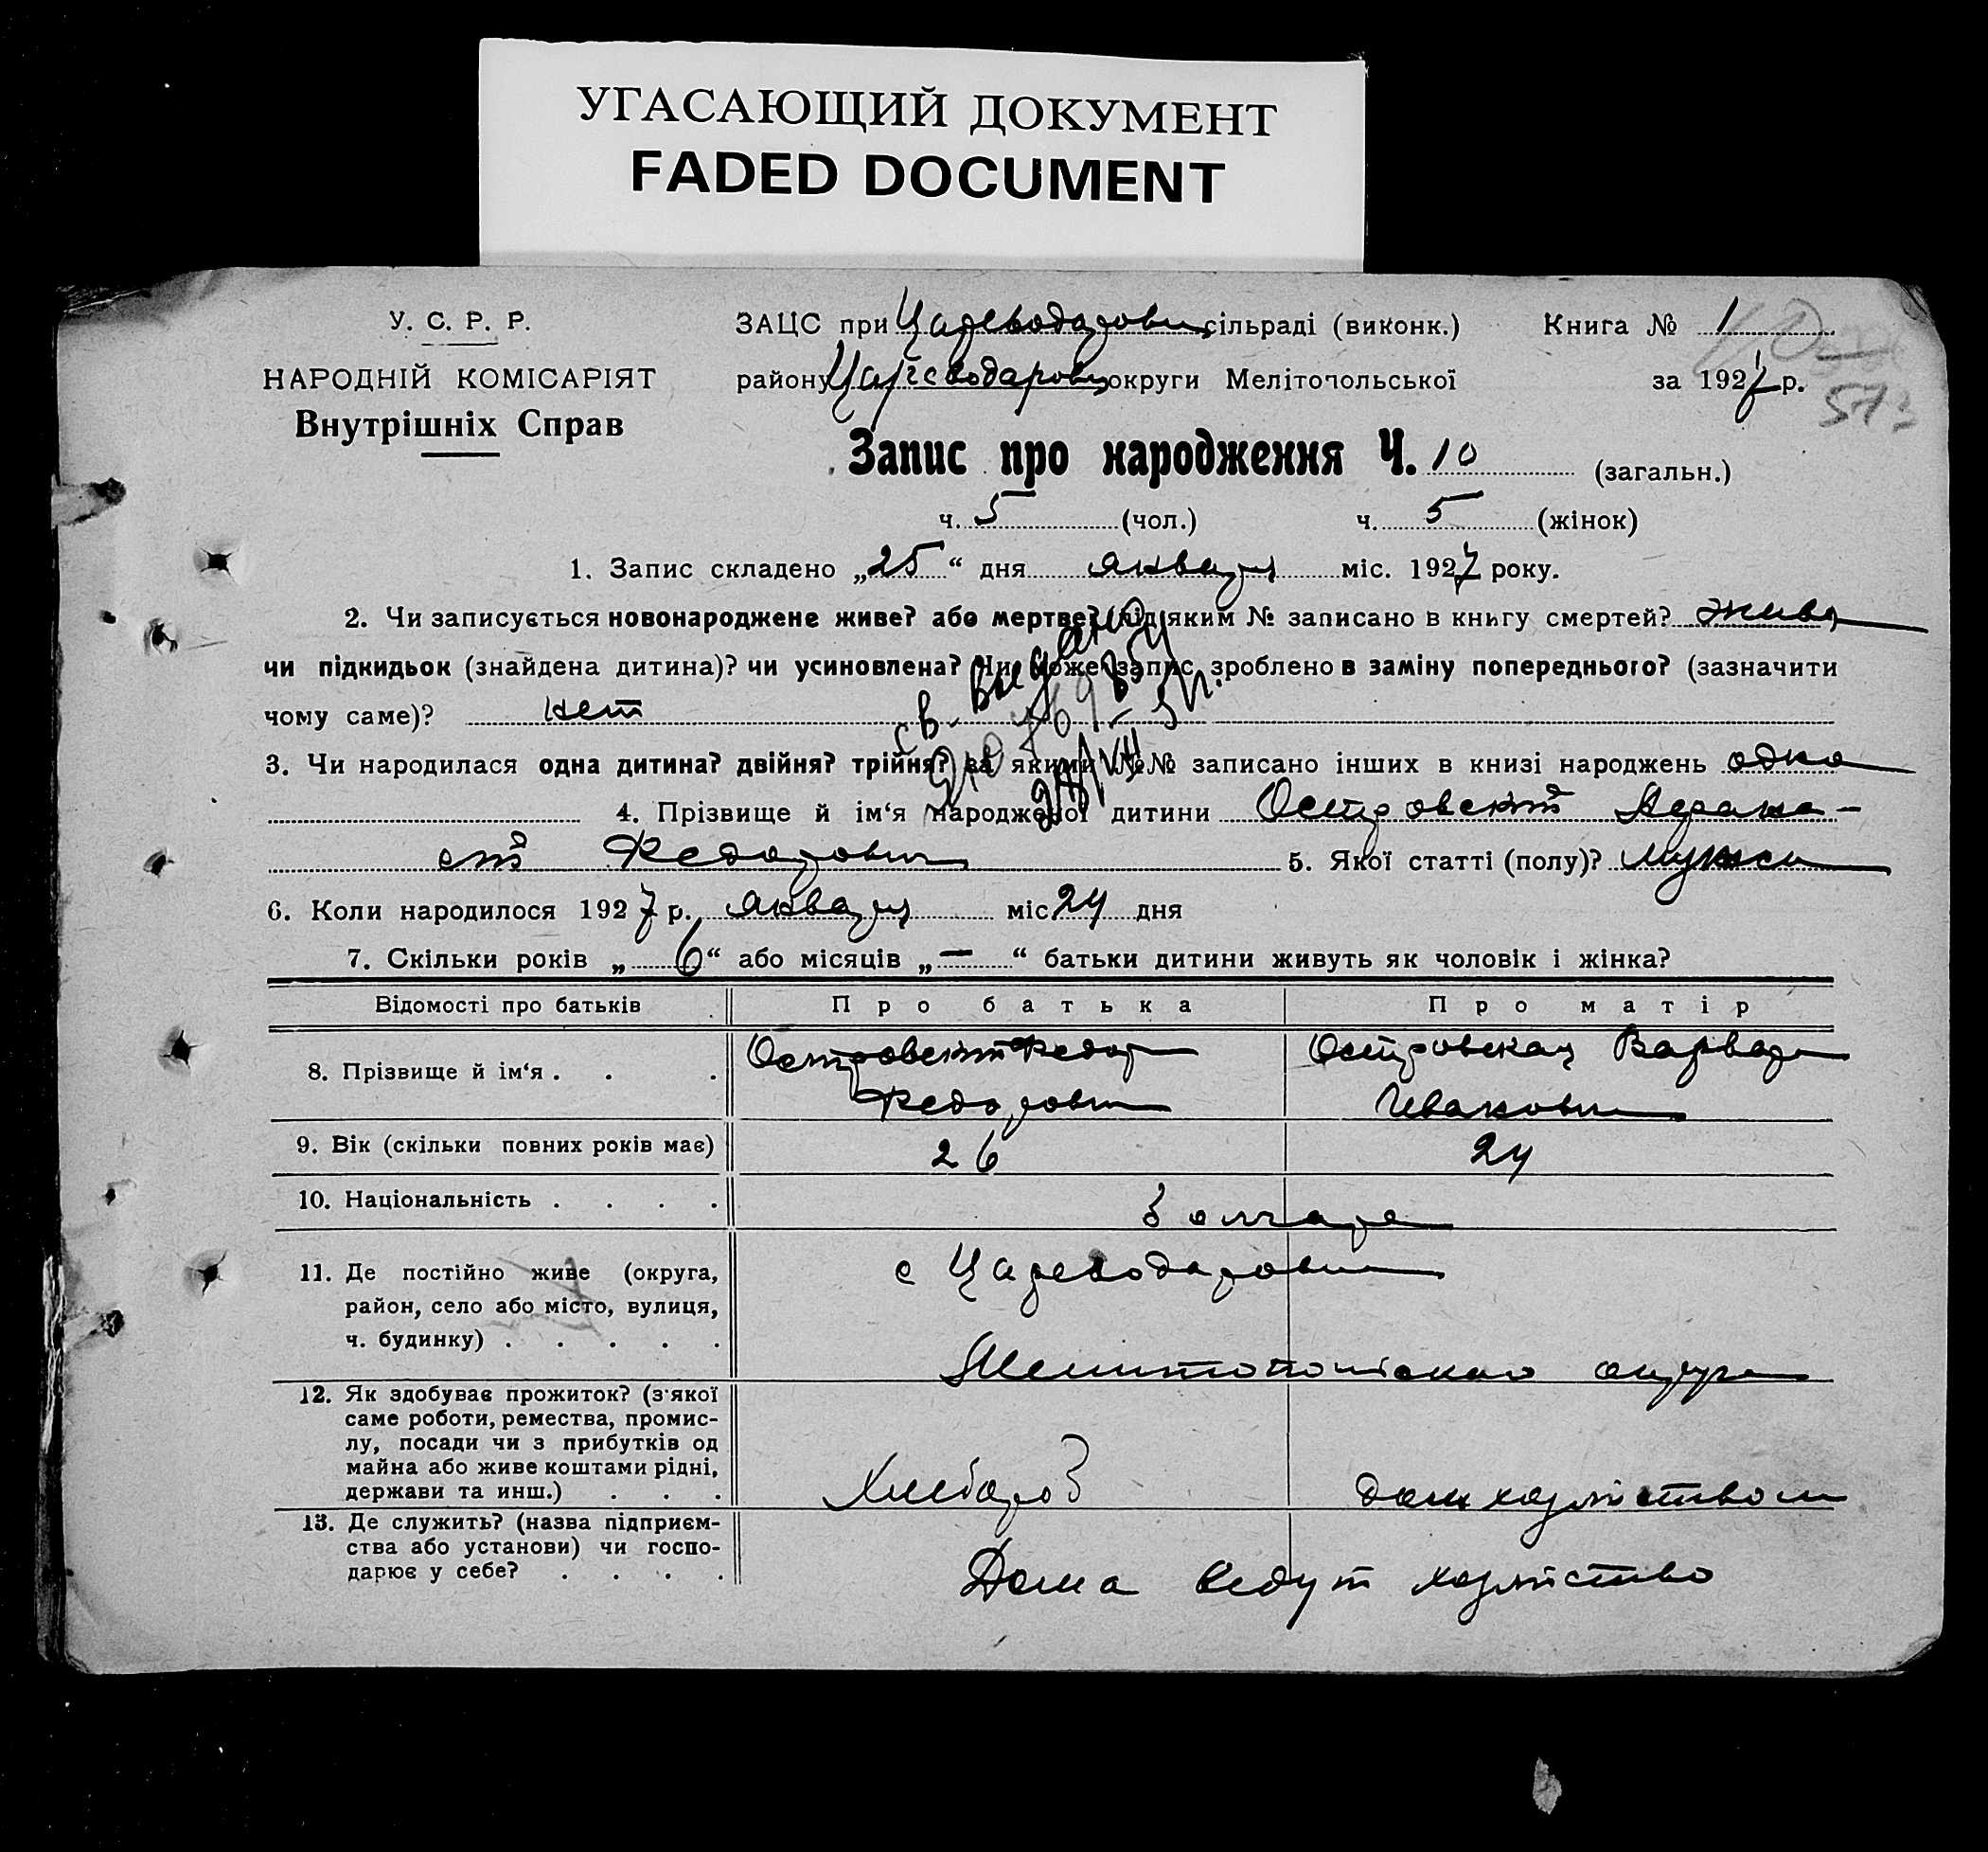 УГАСАЮЩИЙ ДОКУМЕНТ
FADED DOCUMENT
У. С. Р. Р.
НАРОДНІЙ КОМІСАРІЯТ
Внутрішніх Справ
ЗАЦС при Цареводаровк сільраді (виконк.) Книга № 1
району Цареводаровц округи Мелітопольської за 1927 р.
573
Запис про народження Ч. 10 (загальн.)
ч. 5 (чол.) ч. 5 (жінок)
1. Запис складено „25“ дня января міс. 1927 року.
2. Чи записується новонароджене живе? або мертве? під яким № записано в книгу смертей? живо
чи підкидьок (знайдена дитина)? чи усиновлена? Чи може запис зроблено в заміну попереднього? (зазначити
чому саме)? нет
св. выдано
3. Чи народилася одна дитина? двійня? трійня? за якими №№ записано інших в книзі народжень одно
4. Прізвище й ім‘я народженої дитини Островский Афана-
сий Федорович 5. Якої статті (полу)? мужск
6. Коли народилося 1927 р. января міс 24 дня
7. Скільки років „6“ або місяців „—“ батьки дитини живуть як чоловік і жінка?
Відомості про батьків Про батька Про матір
8. Прізвище й ім‘я . . . Островский Федор Федорович Островская Варвара Ивановн
9. Вік (скільки повних років має) 26 24
10. Національність . . . . болгаре
11. Де постійно живе (округа,
район, село або місто, вулиця,
ч. будинку) . . . . .
с Цареводаровк
Мелитопольского округа
12. Як здобуває прожиток? (з'якої
саме роботи, ремества, промис-
лу, посади чи з прибутків од
майна або живе коштами рідні,
держави та инш.) . . .
Хлебороб дом хозяйством
13. Де служить? (назва підприєм-
ства або установи) чи госпо-
дарює у себе? . . . .
Дома ведут хозяйство